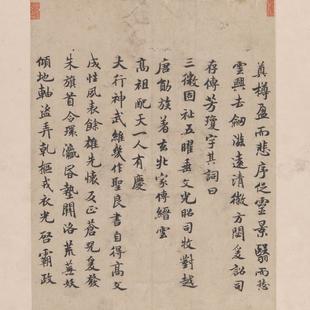 樽盈而悲序促靈景翳而愁
雲興去劒滋遠清徽方閟爰詔司
存傳芳瓊字其詞曰
三徽固社五曜垂文光昭司牧對越
唐勛族著玄兆家傳縉雲
高祖配天一人有慶
大行神武維幾作聖良書自得高文
成性風表餘雄先懷反正蒼兕爰發
朱旗首令環瀛昏墊開洛荒蕪妖
傾地軸盜弄乾樞戎衣光啓霸政